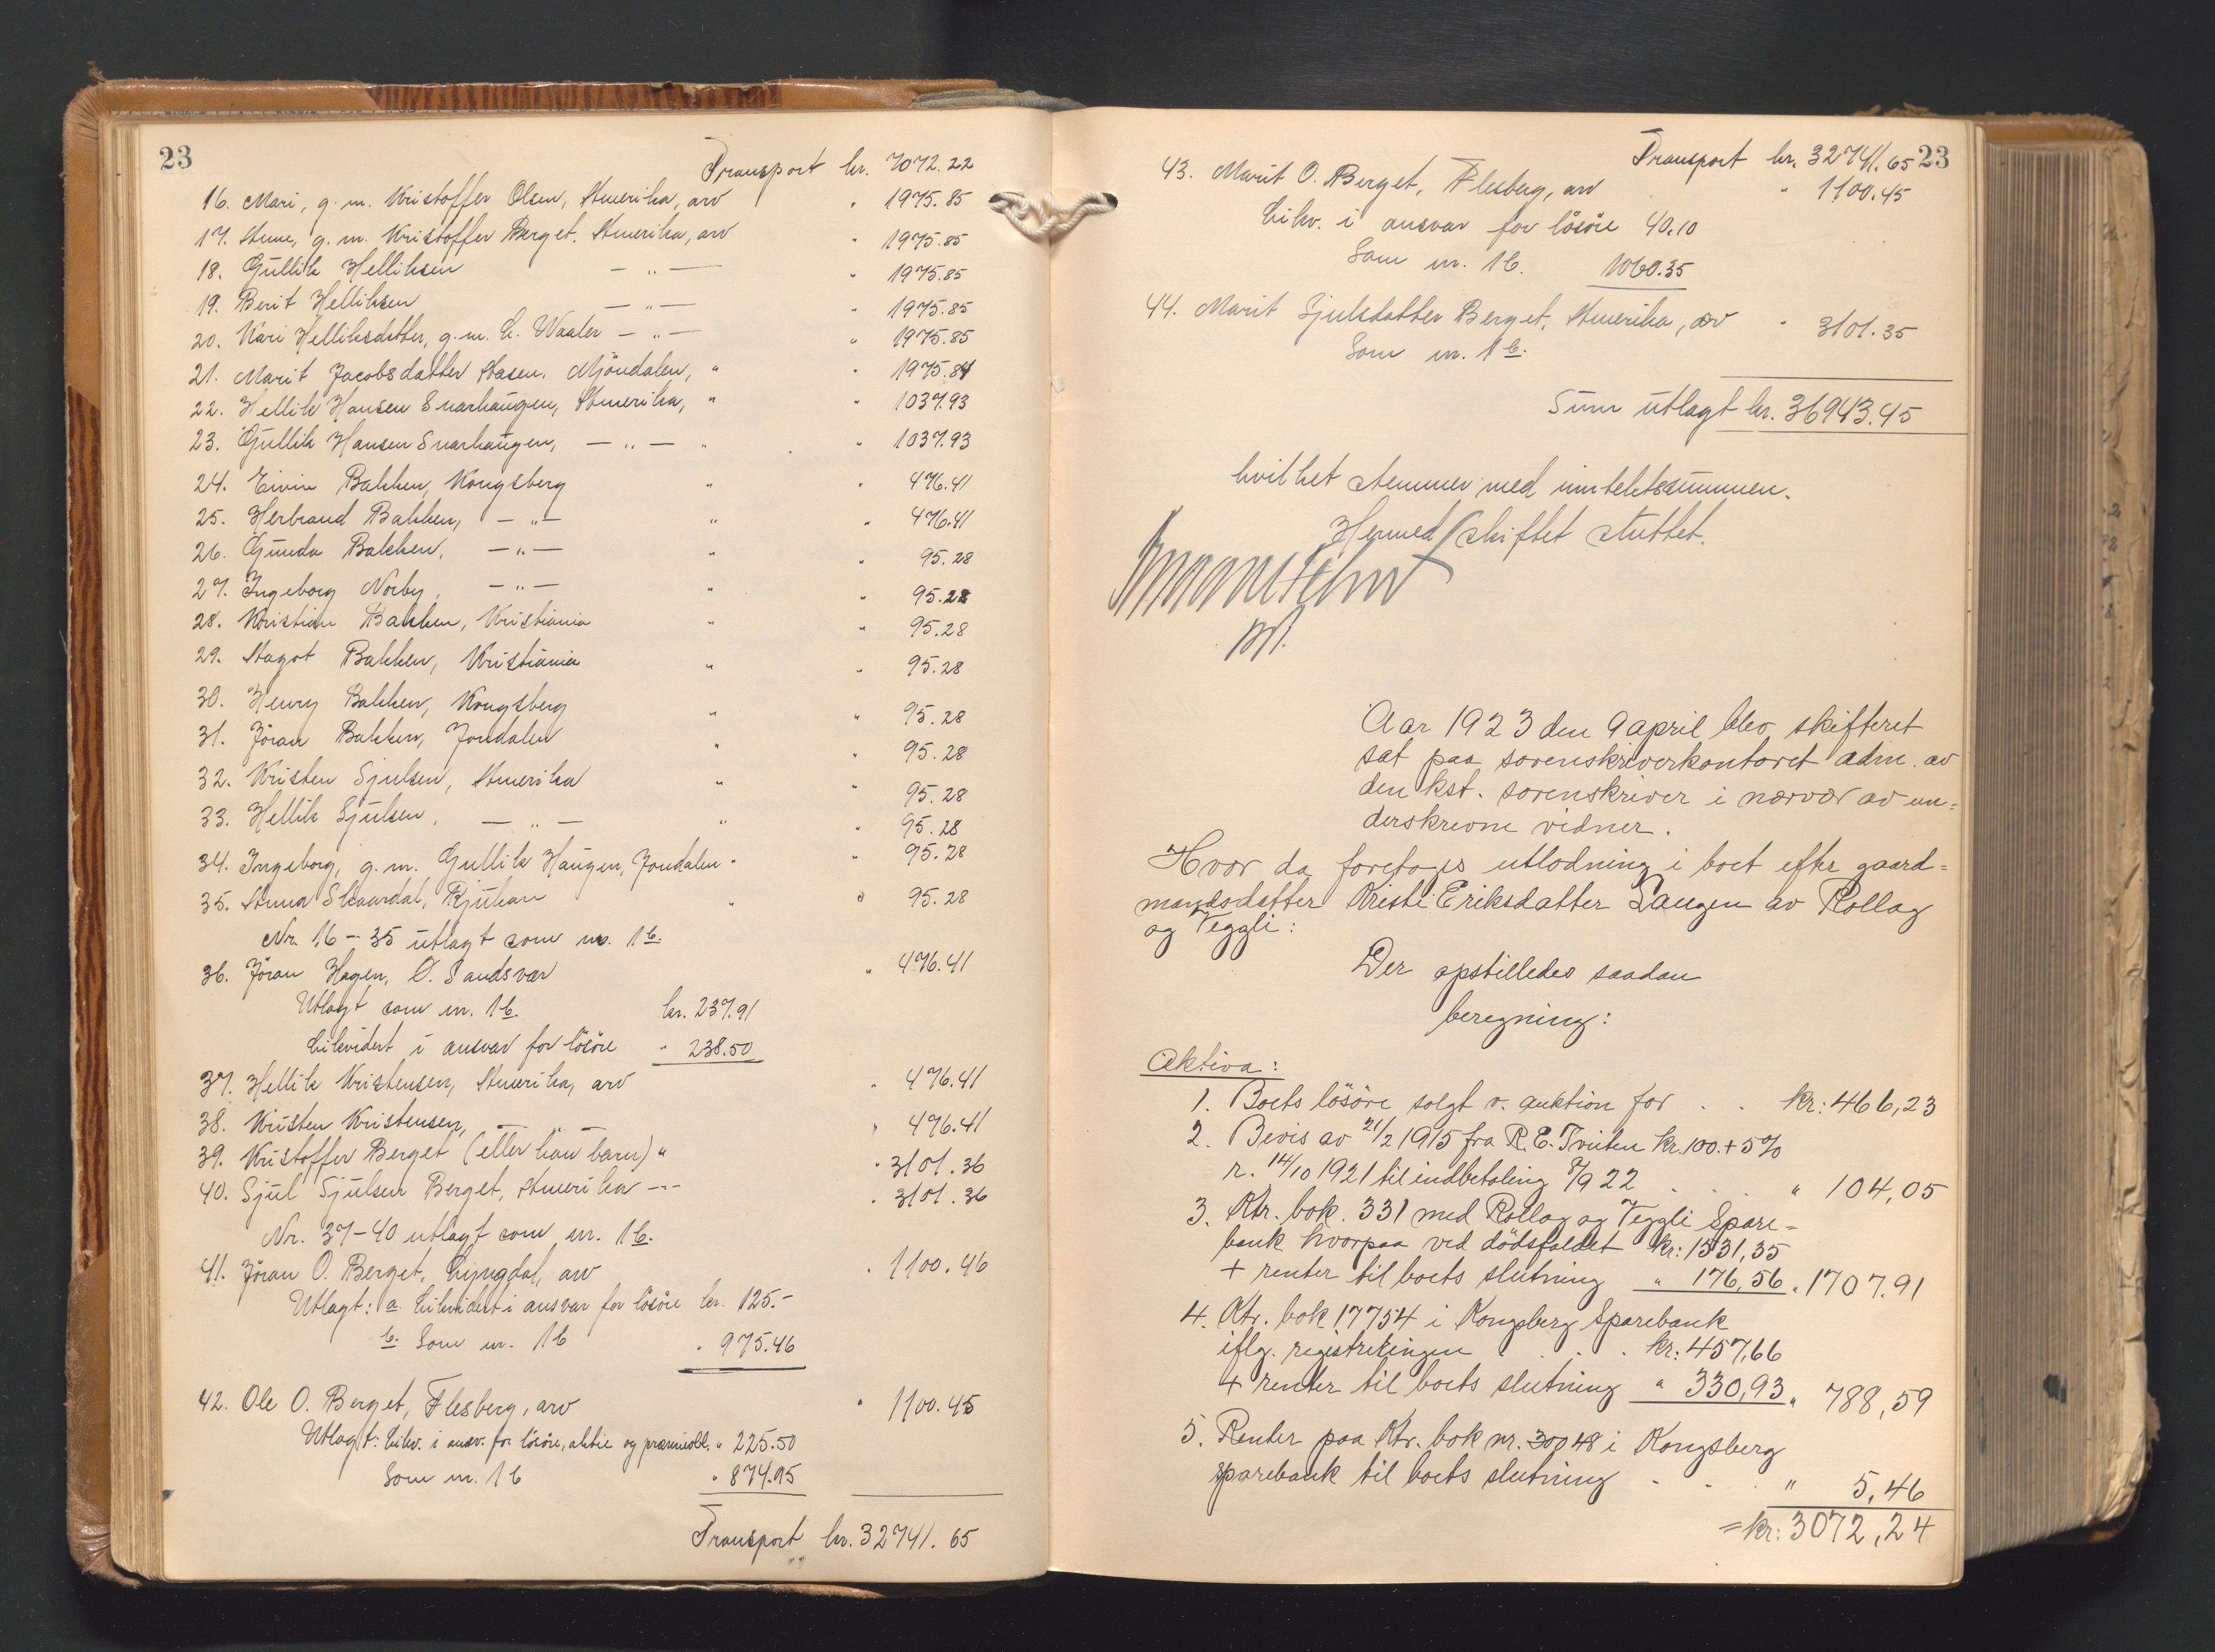 23
Transport kr. 7072.22
16. Mari, g. m. Kristoffer Olsen, Amerika, arv " 1975.85
17. Anne, g. m. Kristoffer Berget, Amerika, arv " 1975.85
18. Gullik Helliksen — " — " 1975.85
19. Berit Helliksen — " — " 1975.85
20. Kari Helliksdatter, g. m. C. Waaler — " — " 1975.85
21. Marit Jacobsdatter Aasen, Mjöndalen, " " 1975.84
22. Hellik Hansen Snarhaugen, Amerika, " " 1037.93
23. Gullik Hansen Snarhaugen, — " — " " 1037.93
24. Eivin Bakken, Kongsberg " " 476.41
25. Herbrand Bakken, — " — " " 476.41
26. Gunda Bakken, — " — " " 95.28
27. Ingeborg Norby, — " — " " 95.28
28. Kristian Bakken, Kristiania " " 95.28
29. Aagot Bakken, Kristiania " " 95.28
30. Henry Bakken, Kongsberg " " 95.28
31. Jöran Bakken, Jondalen " " 95.28
32. Kristen Sjulsen, Amerika " " 95.28
33. Hellik Sjulsen, — " — " " 95.28
34. Ingeborg, g. m. Gullik Haugen, Jondalen " " 95.28
35. Anna Skaardal, Rjukan " " 95.28
Nr. 16 - 35 utlagt som nr. 1 b.
36. Jöran Hagen, Ö. Sandsvær " 476.41
Utlagt som nr. 1 b. kr. 237.91
Likvidert i ansvar for lösöre " 238.50
37. Hellik Kristensen, Amerika, arv " 476.41
38. Kristen Kristensen, — " — " 476.41
39. Kristoffer Berget (eller hans barn) " " 3101.36
40. Sjul Sjulsen Berget, Amerika - " - " 3101.36
Nr. 37-40 utlagt som nr. 1 b.
41. Jöran O. Berget, Lyngdal, arv " 1100.46
Utlagt: a. Likvidert i ansvar for lösöre kr. 125.-
b. Som nr. 1 b " 975.46
42. Ole O. Berget, Flesberg, arv " 1100.45
Utlagt: Likv. i ansv. for lösöre, aktie og præmieobl. " 225.50
Som nr. 1 b " 874.95
Transport kr. 32741.65
Transport kr. 32741.65 23
43. Marit O. Berget, Flesberg, arv " 1100.45
Likv. i ansvar for lösöre 40.10
Som nr. 1 b. 1060.35
44. Marit Sjulsdatter Berget, Amerika, arv " 3101.35
Som nr. 1 b.
Sum utlagt kr. 36943.45
hvilket stemmer med inntektssummen.
Hermed skiftet sluttet.
Aar 1923 den 9 april blev skifteret
sat paa sorenskriverkontoret adm. av
den kst. sorenskriver i nærvær av un=
derskrevne vidner.
Hvor da foretoges utlodning i boet efter gaard=
mandsdatter Kristi Eriksdatter Laugen av Rollag
og Veggli:
Der opstilledes saadan
beregning:
Aktiva:
1. Boets lösöre solgt v. auktion for . . kr: 466,23
2. Bevis av 21/2 1915 fra R. E. Tviten kr. 100. + 5%
r. 14/10 1921 til indbetaling 8/9 22 . . " 104,05
3. Ktr. bok. 331 med Rollag og Veggli Spare=
bank hvorpaa ved dödsfaldet kr: 1531,35
+ renter til boets slutning " 176,56 " 1707.91
4. Ktr. bok 17754 i Kongsberg Sparebank
iflg. registreringen . . . kr: 457,66
+ renter til boets slutning " 330,93 " 788,59
5. Renter paa Ktr. bok nr. 30048 i Kongsberg
sparebank til boets slutning . . . " 5,46
= kr: 3072,24